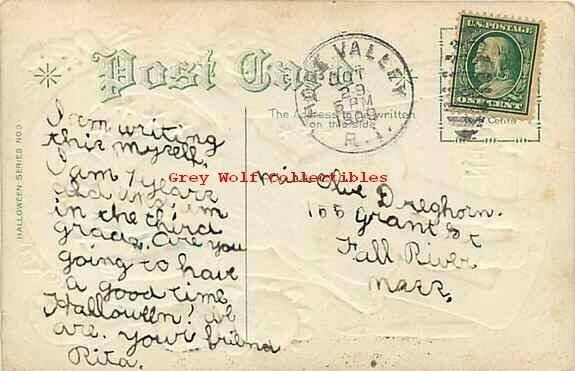 Post Card
HOPE VALLEY
OCT
29
6 PM
1909
R.I.
U.S. POSTAGE
ONE CENT
The Address to be written
on this side
Cents
HALLOWEEN SERIES NO 3
I am writing
this myself.
I am 7 years
old and am
in the third
grade. Are you
going to have
a good time
Halloween? We
are. your friend
Rita.
Grey Wolf Collectibles
Miss Olive Dreghorn.
155 Grant St
Fall River
Mass.